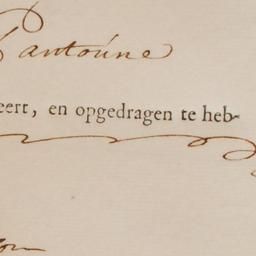 Pantoúne
eert, en opgedragen te heb-